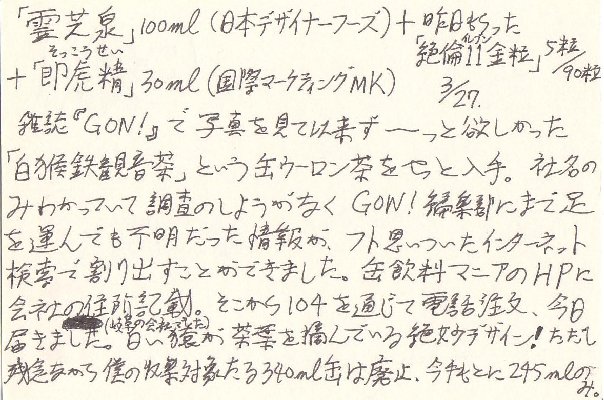 「霊芝泉」100ml(日本デザイナーフーズ)+昨日もらった
「絶倫11金粒」5粒/90粒
イレブン
そっこうせい
+「即虎精」30ml(国際マーケティングMK)
3/27.
雑誌『GON!』で写真を見て以来ずーーっと欲しかった
「白猴鉄観音茶」という缶ウーロン茶をやっと入手。社名の
みわかっていて調査のしようがなく GON!編集部にまで足
を運んでも不明だった情報が、フト思いついたインターネット
検索で割り出すことができました。缶飲料マニアのHPに
会社の住所記載。そこから104を通じて電話注文、今日
届きました。(岐阜の会社でした)白い猿が茶葉を摘んでいる絶妙デザイン!ただし
残念ながら僕の収集対象たる340ml缶は廃止、今手もとに245mlのみ。